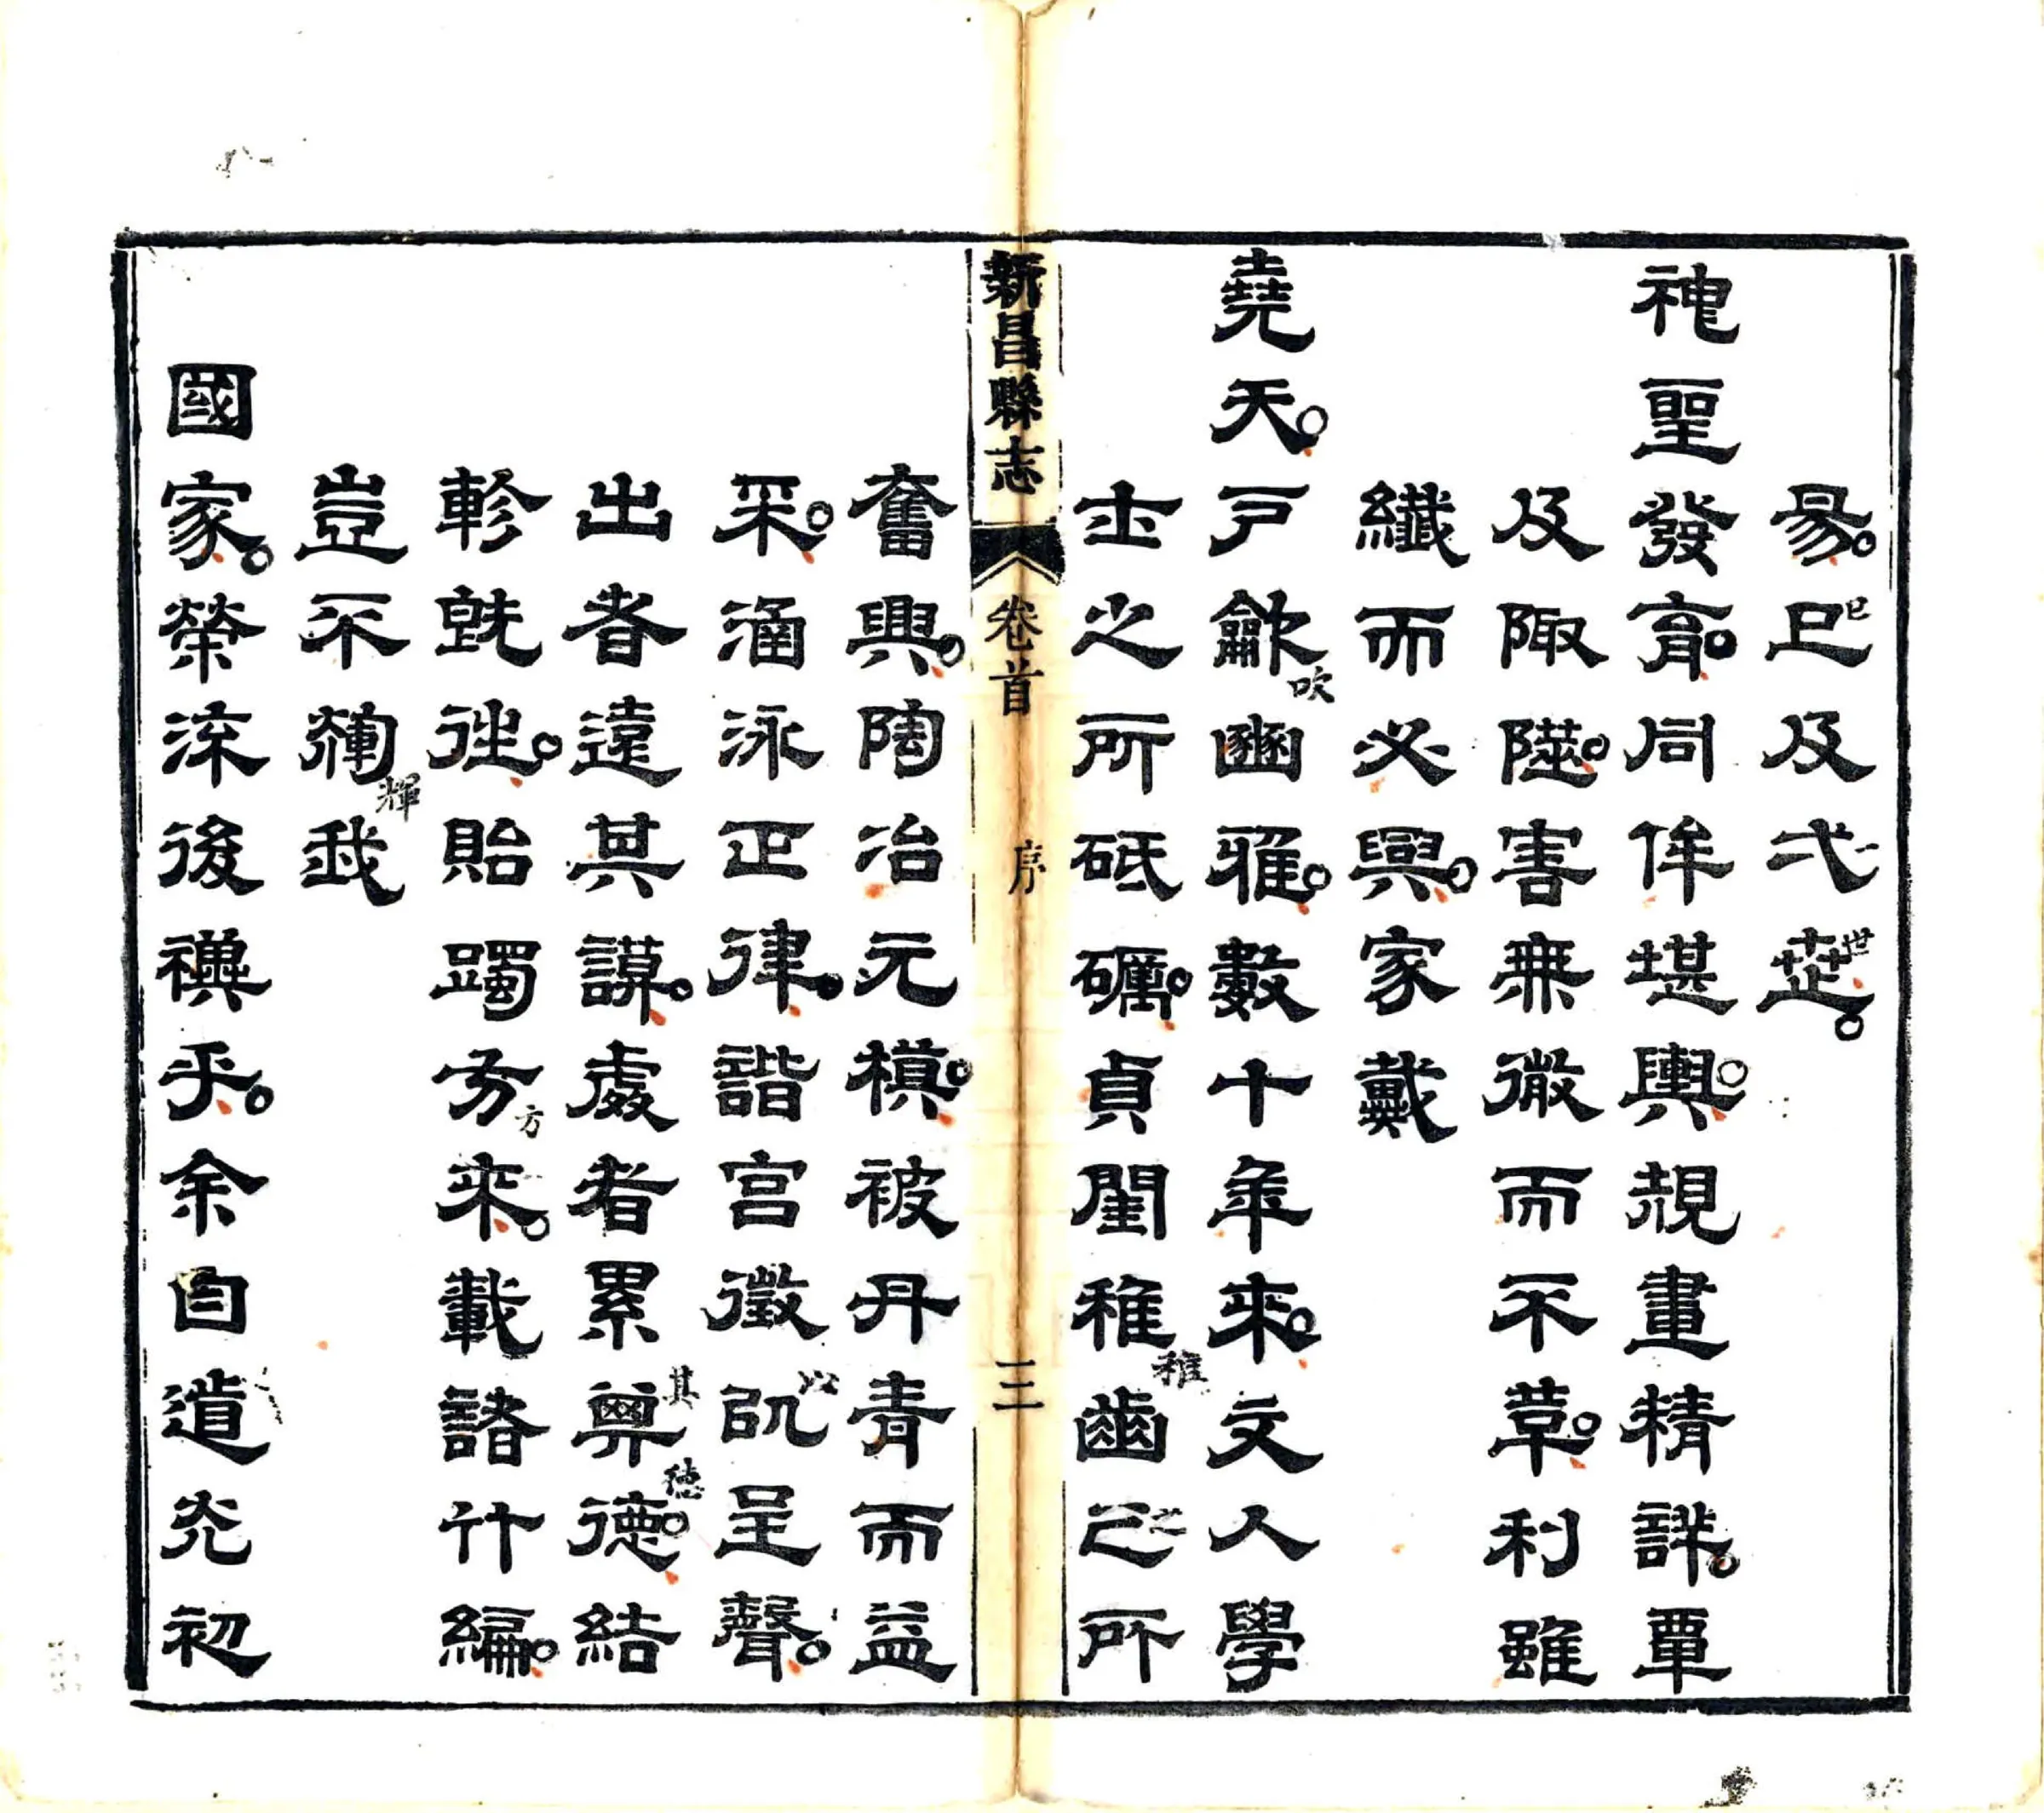 昜巳及弍㱏
神聖發育同侔堪輿規畫精詳覃
及陬隧害無微而不革利雖
纖而必興家戴
堯天戶龡豳雅數十年來文人學
士之所砥礪貞閨稚齒之所
新昌縣志 卷首 序 三
奮興陶冶元模被丹青而益
采涵泳正律諧宮徵㕥呈聲
出者遠其謨處者累其德結
軫旣徃貽躅方來載諸竹編
豈不㷇我
國家榮流後禩乎余自道光初